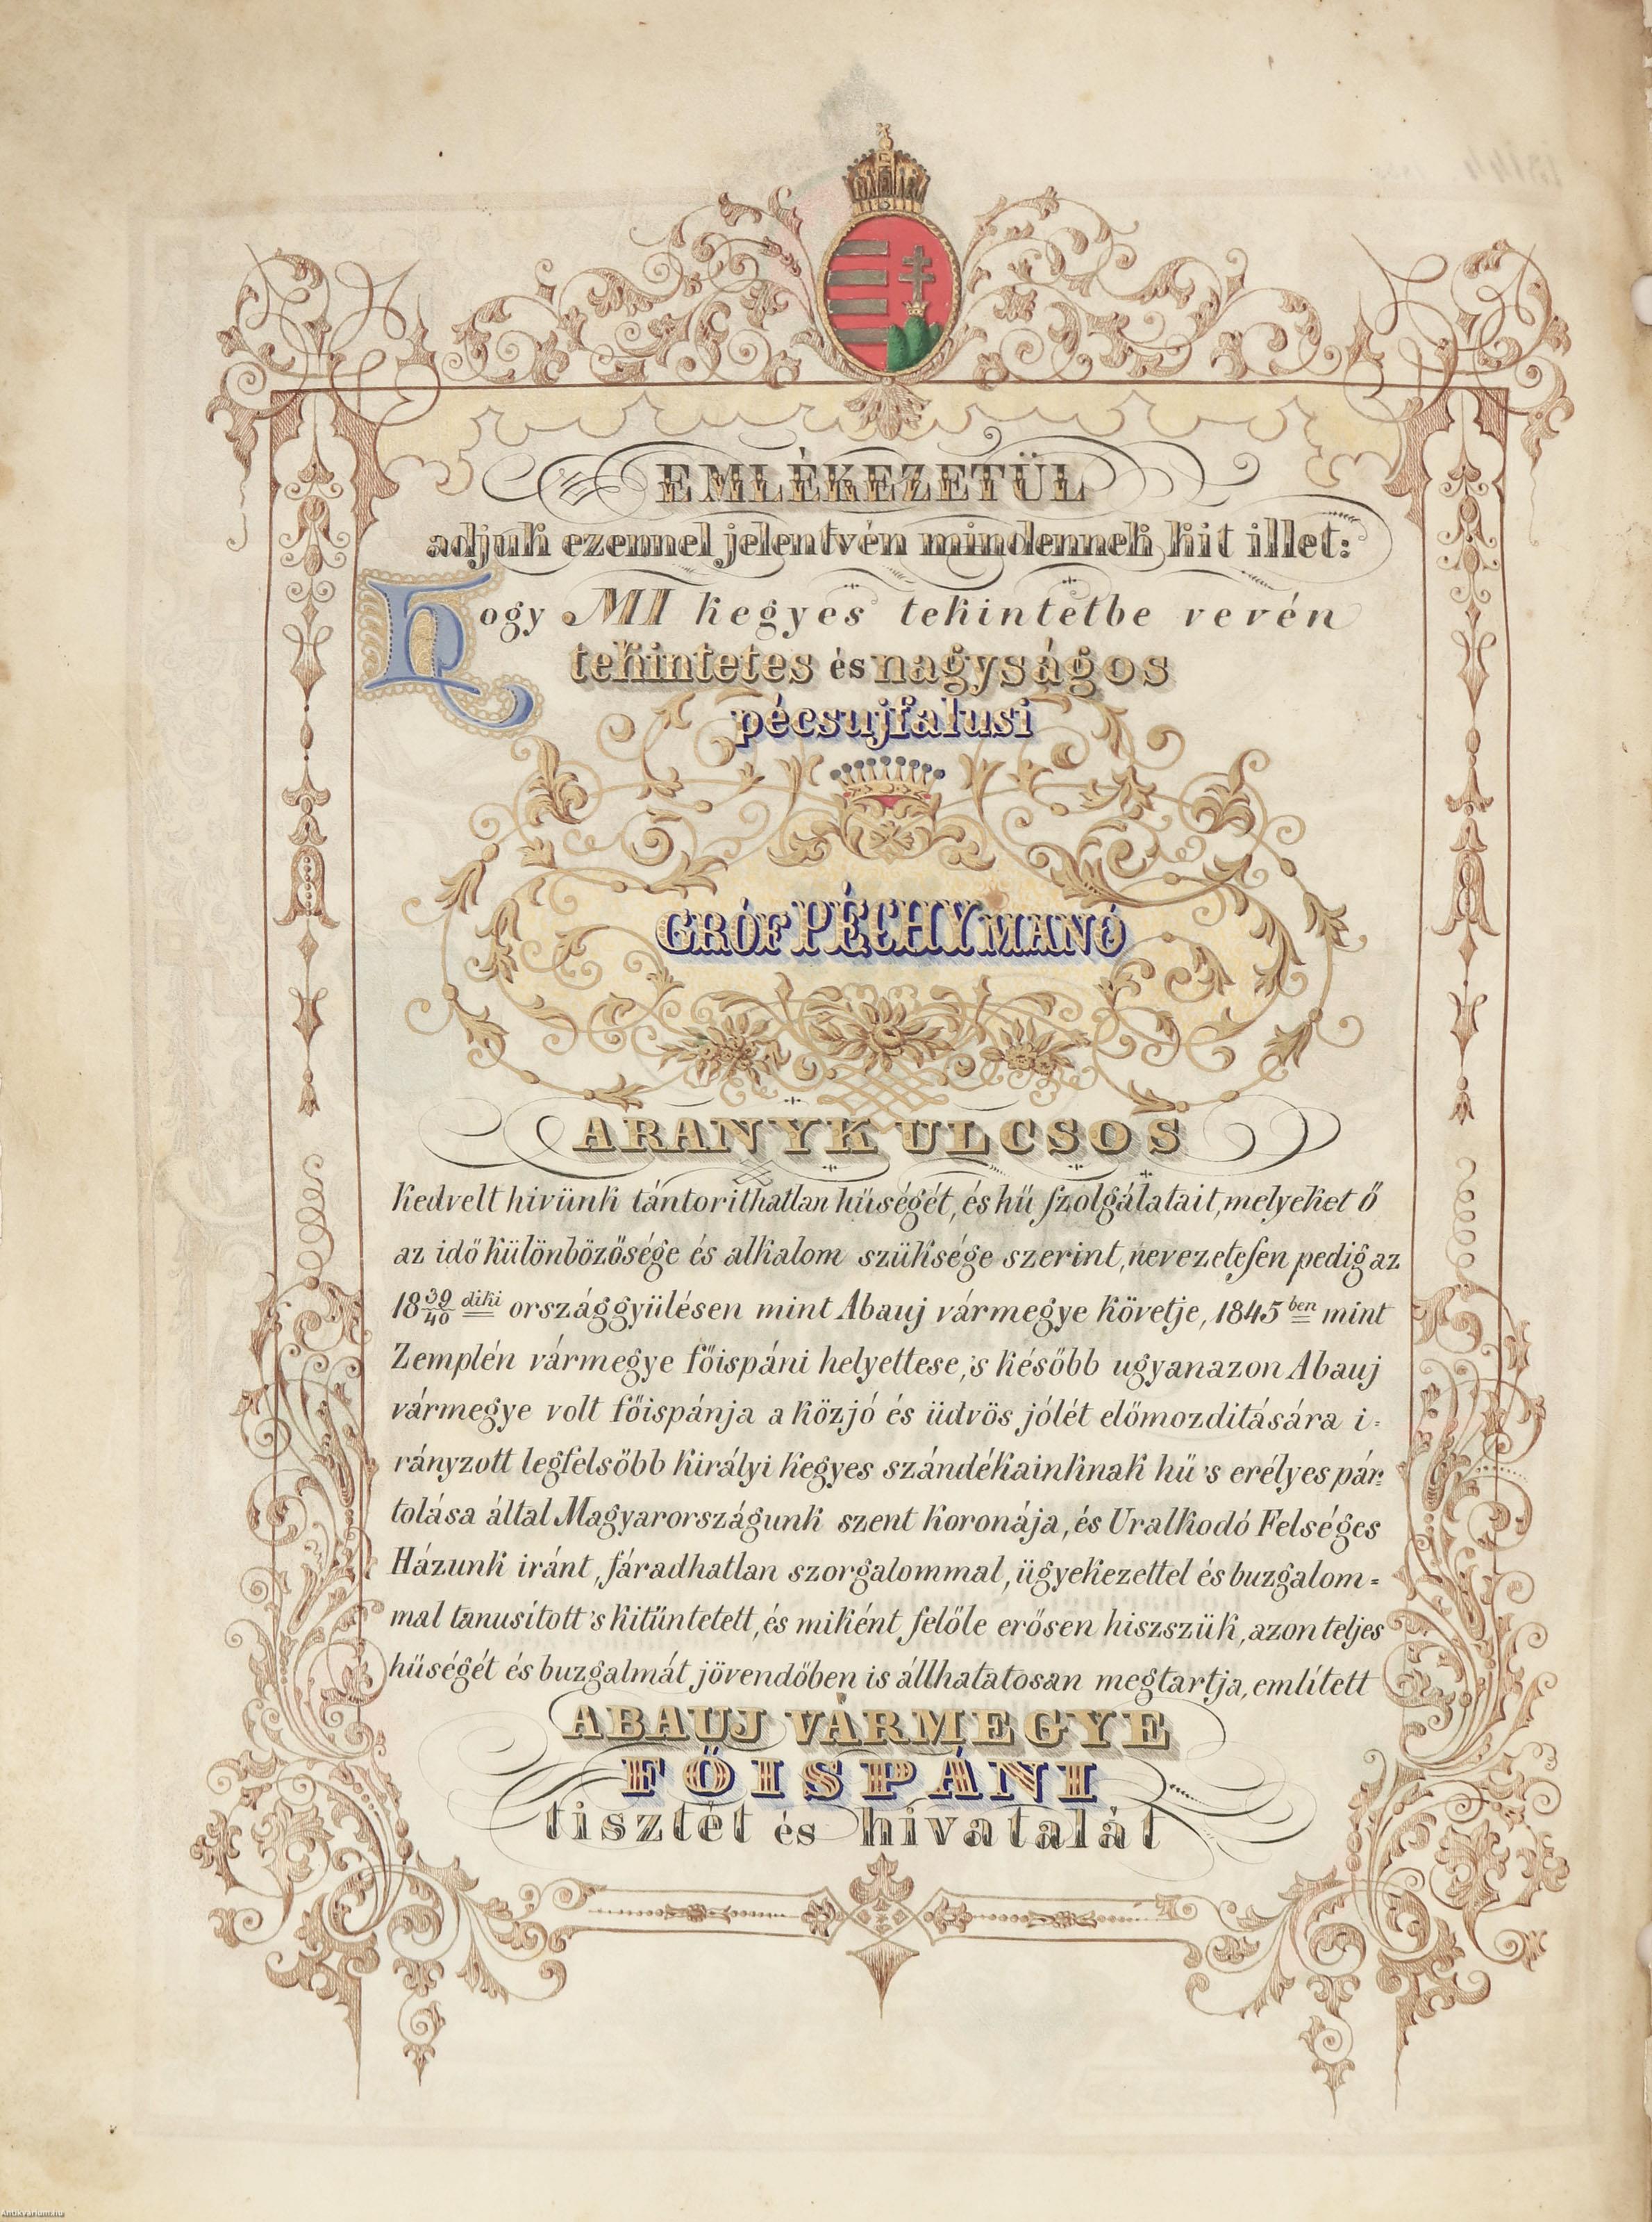 EMLÉKEZETÜL
adjuk ezennel jelentvén mindennek kit illet:
Hogy MI kegyes tekintetbe vevén
tekintetes és nagyságos
pécsujfalusi
GRÓF PÉCHY MANÓ
ARANYKULCSOS
kedvelt hivünk tántorithatlan hűségét, és hű szolgálatait, melyeket ő
az idő különbözősége és alkalom szüksége szerint, nevezetesen pedig az
18 39/40 diki országgyülésen mint Abauj vármegye követje, 1845 ben mint
Zemplén vármegye főispáni helyettese, 's később ugyanazon Abauj
vármegye volt főispánja a közjó és üdvös jólét előmozditására i-
rányzott legfelsőbb királyi kegyes szándékainknak hű 's erélyes pár-
tolása által Magyarországunk szent koronája, és Uralkodó Felséges
Házunk iránt, fáradhatlan szorgalommal, ügyekezettel és buzgalom=
mal tanusított 's kitüntetett, és miként felőle erősen hiszszük, azon teljes
hűségét és buzgalmát jövendőben is állhatatosan megtartja, említett
ABAUJ VÁRMEGYE
FŐISPÁNI
tisztét és hivatalát
Antikvarium.hu